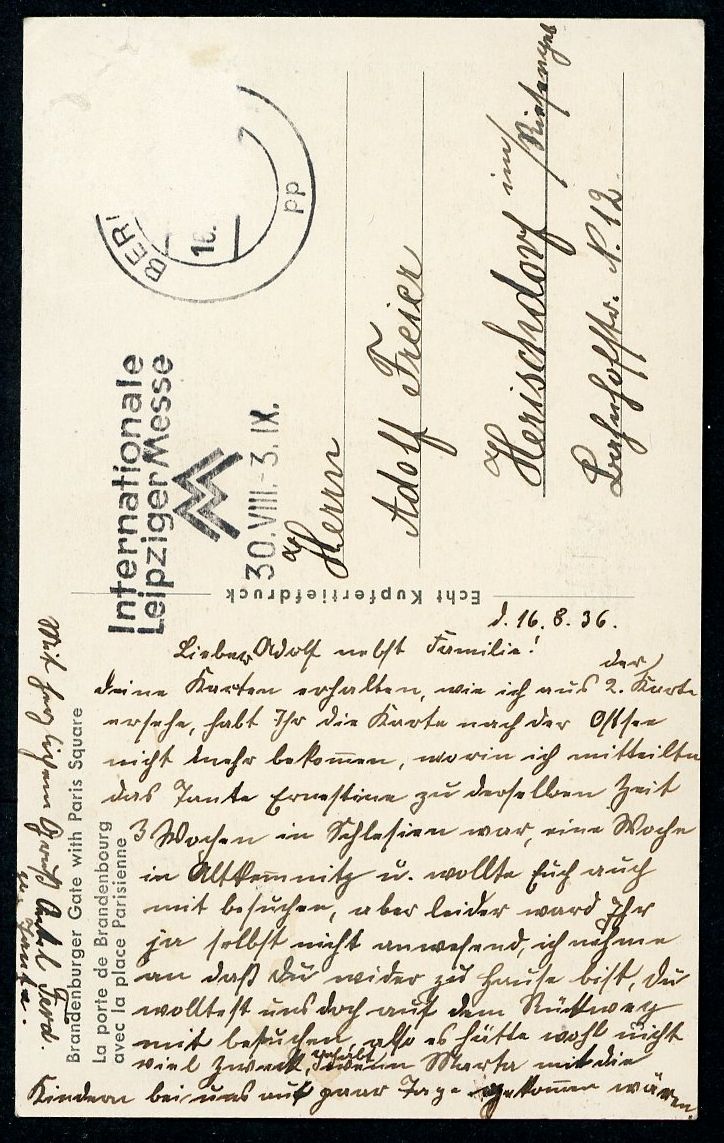 BER
16.
pp
Internationale
Leipziger Messe
30.VIII.-3.IX.
Herrn
Adolf Freier
Herischdorf im Riesengeb
Bahnhofstr. N. 12
Echt Kupfertiefdruck
Brandenburger Gate with Paris Square
La porte de Brandenbourg
avec la place Parisienne
d. 16.8.36.
Lieber Adolf nebst Familie!
deine Karten erhalten, wie ich aus der 2. Karte
ersehe, habt Ihr die Karte nach der Ostsee
nicht mehr bekommen, worin ich mitteilte
das Tante Ernestine zu derselben Zeit
3 Wochen in Schlesien war, eine Woche
in Altkemnitz u. wollte Euch auch
mit besuchen, aber leider ward Ihr
ja selbst nicht anwesend, ich nehme
an daß Du wider zu Hause bist, Du
wolltest uns doch auf dem Rückweg
mit besuchen, also es hätte wohl nicht
viel Zweck gehabt, wenn Marta mit die
Kindern bei uns auf paar Tage gekommen wären.
Mit herzlichem Gruß Onkel Ferd.
u. Tante.